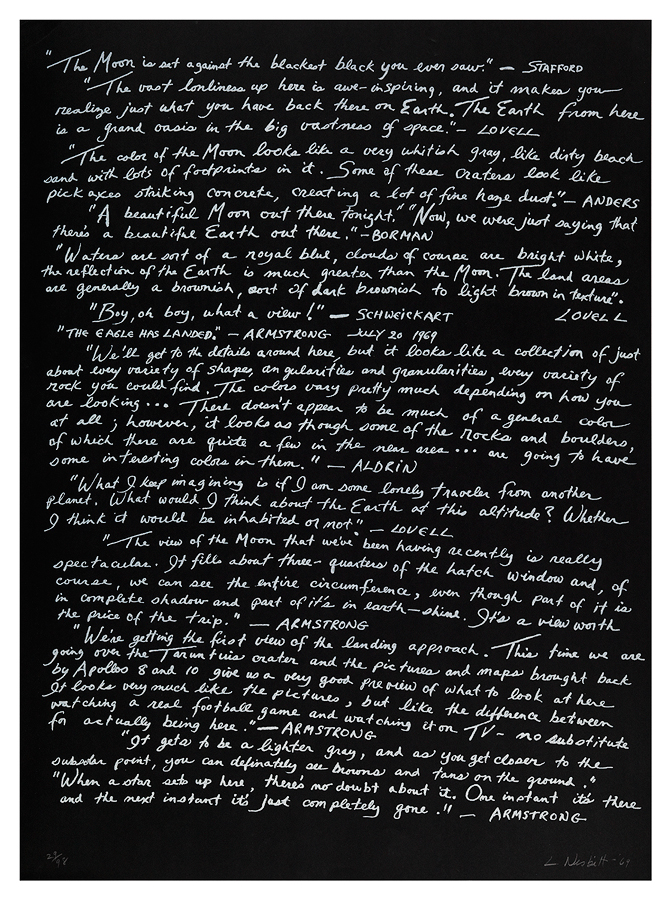 "The Moon is set against the blackest black you ever saw." — STAFFORD
"The vast lonliness up here is awe-inspiring, and it makes you
realize just what you have back there on Earth. The Earth from here
is a grand oasis in the big vastness of space." — LOVELL
"The color of the Moon looks like a very whitish gray, like dirty beach
sand with lots of footprints in it. Some of these craters look like
pick axes striking concrete, creating a lot of fine haze dust." — ANDERS
"A beautiful Moon out there tonight." "Now, we were just saying that
there's a beautiful Earth out there." — BORMAN
"Waters are sort of a royal blue, clouds of course are bright white,
the reflection of the Earth is much greater than the Moon. The land areas
are generally a brownish, sort of dark brownish to light brown in texture".
"Boy, oh boy, what a view!" — SCHWEICKART LOVELL
"THE EAGLE HAS LANDED." — ARMSTRONG JULY 20 1969
"We'll get to the details around here, but it looks like a collection of just
about every variety of shapes, angularities and granularities, every variety of
rock you could find. The colors vary pretty much depending on how you
are looking ... There doesn't appear to be much of a general color
at all; however, it looks as though some of the rocks and boulders,
of which there are quite a few in the near area ... are going to have
some interesting colors in them." — ALDRIN
"What I keep imagining is if I am some lonely traveler from another
planet. What would I think about the Earth at this altitude? Whether
I think it would be inhabited or not." — LOVELL
"The view of the Moon that we've been having recently is really
spectacular. It fills about three-quarters of the hatch window and, of
course, we can see the entire circumference, even though part of it is
in complete shadow and part of it's in earth-shine. It's a view worth
the price of the trip." — ARMSTRONG
"We're getting the first view of the landing approach. This time we are
going over the Taruntuis crater and the pictures and maps brought back
by Apollos 8 and 10 give us a very good preview of what to look at here
It looks very much like the pictures, but like the difference between
watching a real football game and watching it on TV - no substitute
for actually being here." — ARMSTRONG
"It gets to be a lighter gray, and as you get closer to the
subsolar point, you can definately see browns and tans on the ground."
"When a star sets up here, there's no doubt about it. One instant it's there
and the next instant it's just completely gone." — ARMSTRONG
L Nesbitt - '69